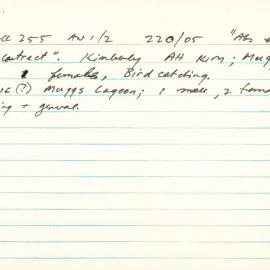 255 AN 1/2 220/05 "Abs
contract". Kimberley AH Kim; Mug
2 females, Bird catching.
(?) Muggs Lagoon; 1 male, 2 fema
+ genval.